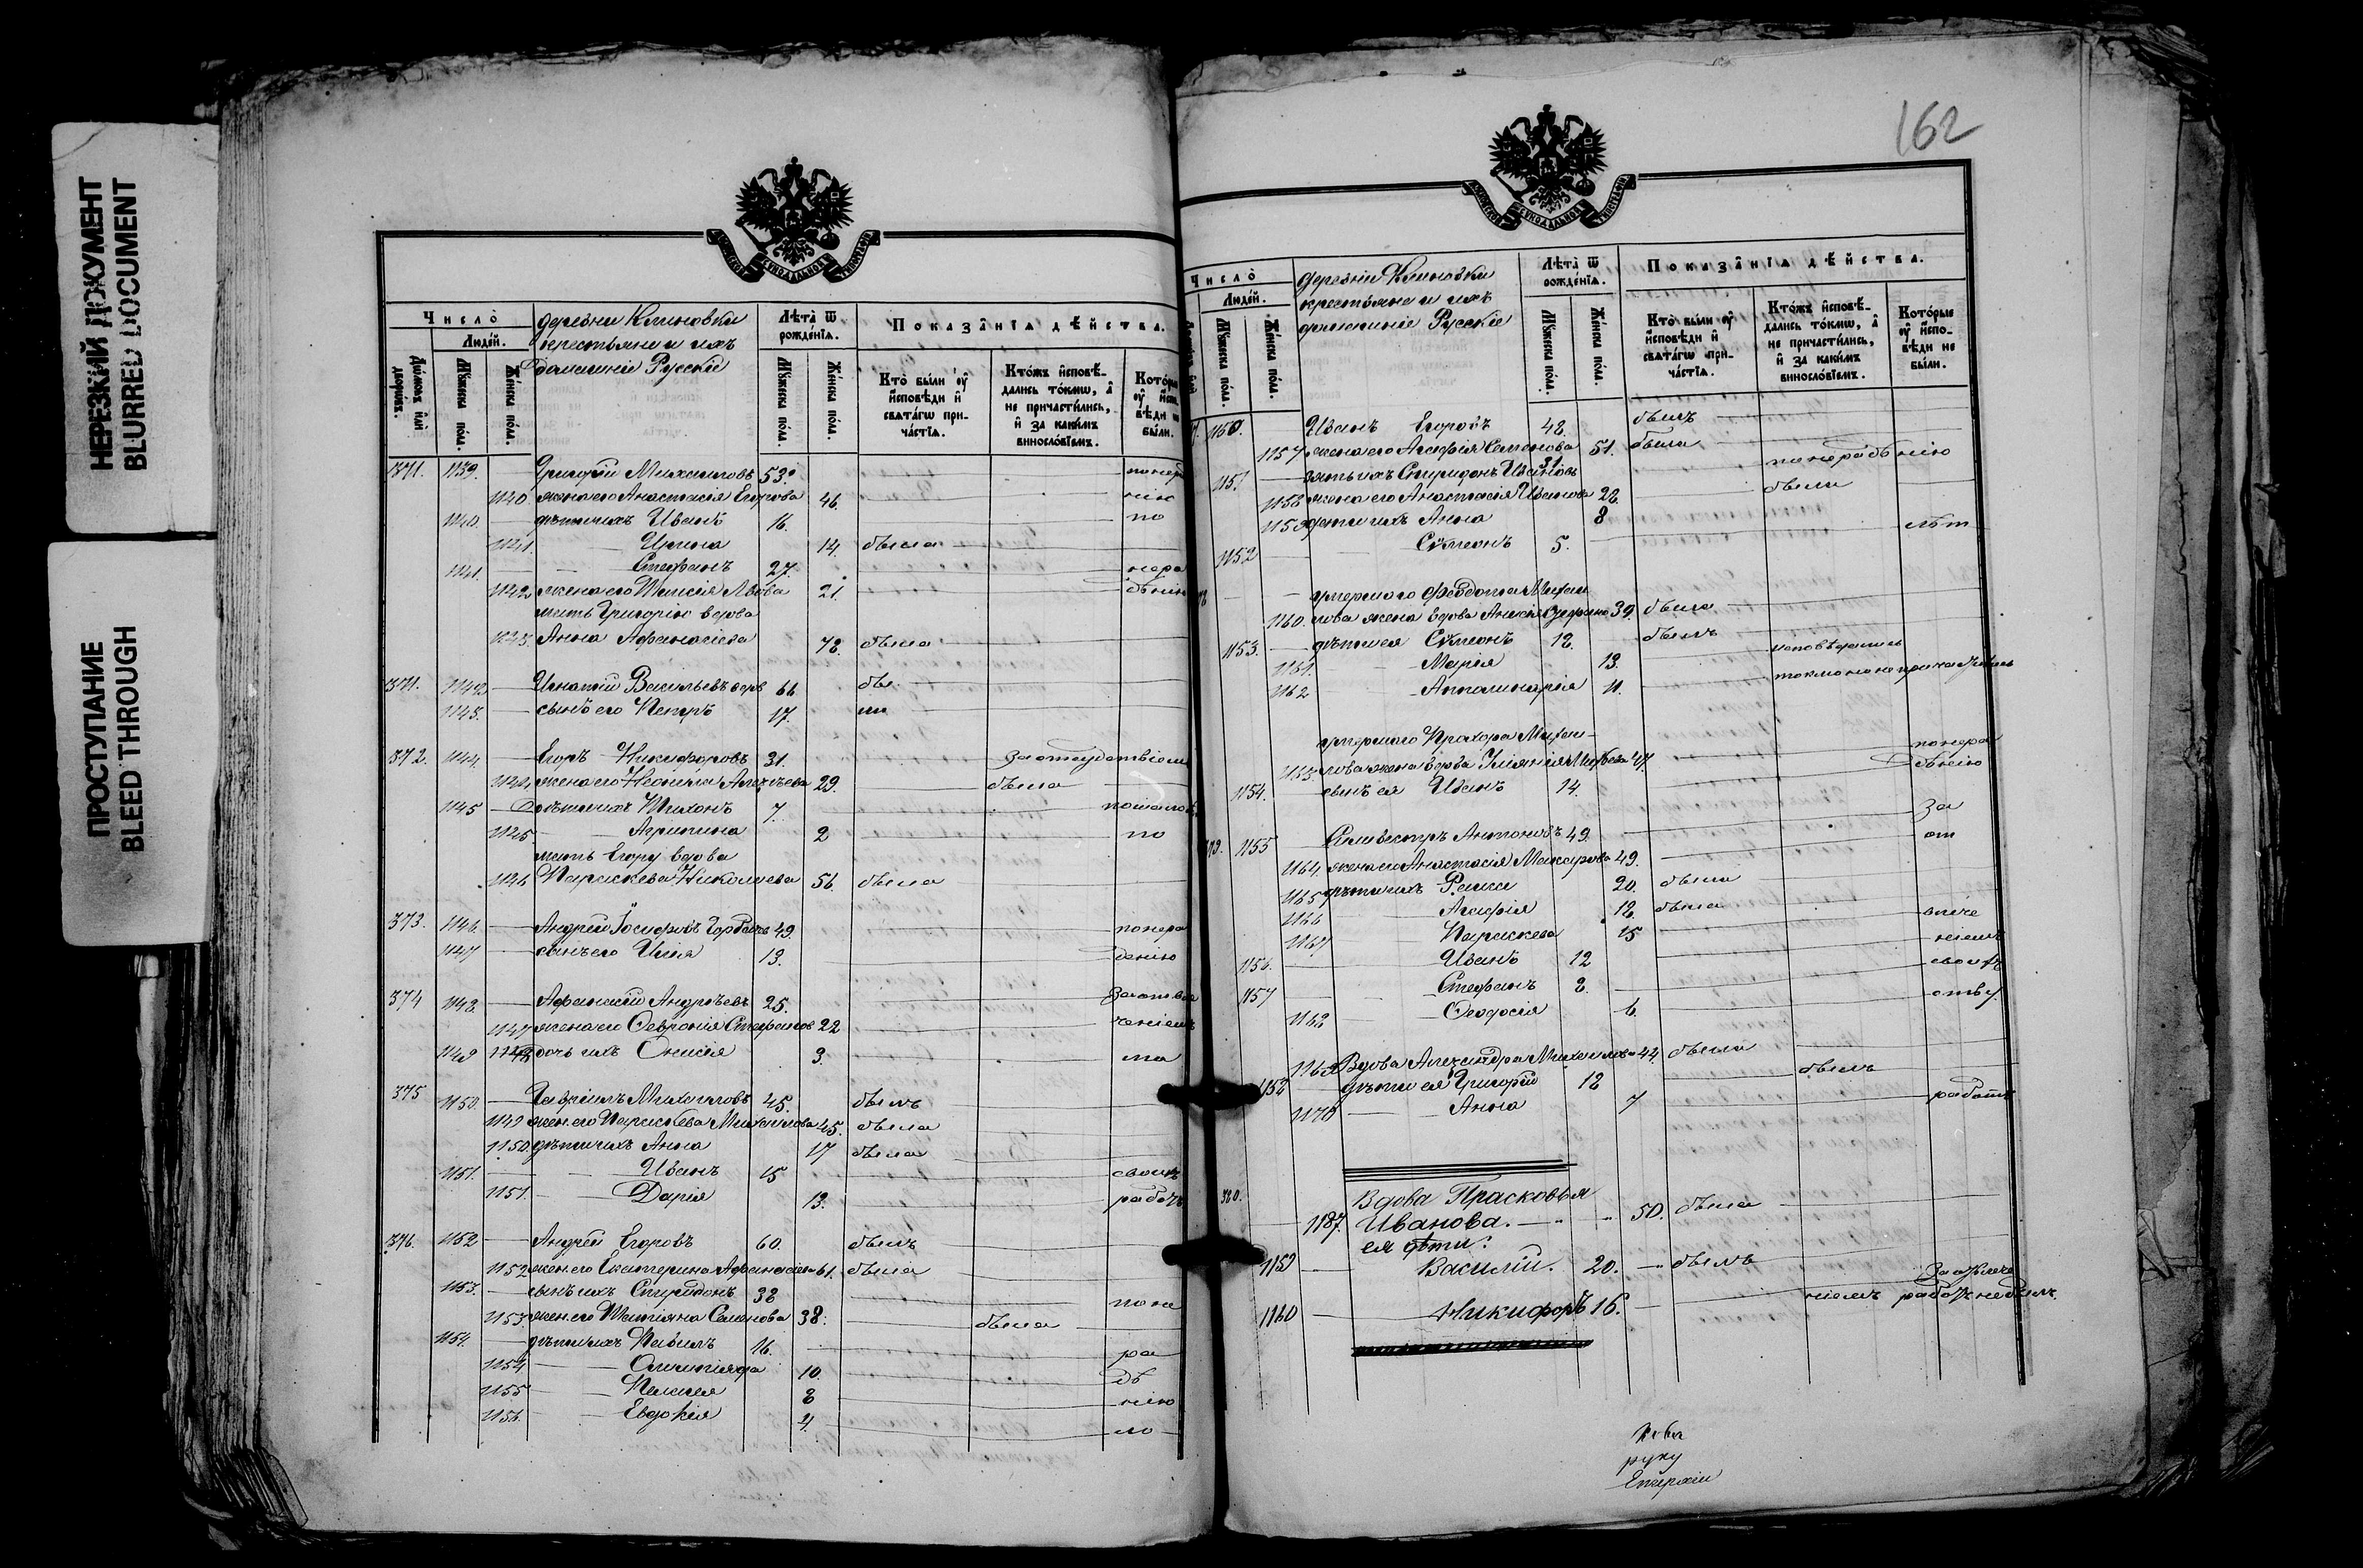 НЕРЕЗКИЙ ДОКУМЕНТ
BLURRED DOCUMENT
ПРОСТУПАНИЕ
BLEED THROUGH
Число̀
Людéй.
Домѡвъ илѝ дворѡвъ.
Мꙋжеска пóла.
Жéнска пóла.
деревни Климовки
крестьяне и ихъ
домашніе Русскіе
Лѣта̀ ѿ рождéнїѧ.
Мꙋжеска пóла.
Жéнска пóла.
Показа̂нїѧ дѣ́йства.
Кто̀ бы́ли ᲂу҆ и҆сповѣди и҆ свѧта́гѡ причáстїѧ.
Кто́жъ и҆сповѣдались то́кмѡ, а҆ не причасти́лись, и҆ за каки́мъ винослóвїемъ.
Кото́рые ᲂу҆ и҆сповѣди не бы́ли.
371. 1139. — Григорій Михаиловъ 53. понера
1140 жена его Анастасія Егорова 46. нію
1140. — дѣти ихъ Иванъ 16. по
1141. — Ирина 14. была
1141. — Стефанъ 27. нера
1142 жена его Таисія Львова 21. дѣнію
мать Григорію вдова
1143. Анна Афанасіева 78. была
371. 1142 — Игнатій Васильевъ вдов 66 бы
1143. — сынъ его Петръ 17. ли
372. 1144. — Егоръ Никифоровъ 31. за отсудствіем
1144 жена его Неонила Алексѣева 29. была
1145 — дѣти ихъ Тихонъ 7. помалол
1145 — Агрипина 2 по
мать Егору вдова
1146 Параскева Николаева 56 была
373. 1146. — Андрей Іосифовъ Горбачев 49. понера
1147 — сынъ его Илія 13. дѣнію
374 1148. — Афанасій Андреевъ 25. Заотвле
1147 жена его Февронія Стефанов 22 ченіемъ
1149 1148 дочь ихъ Онисія 3. ма
375 1150. — Гавріилъ Михаиловъ 45. былъ
1149 жен. его Параскева Михаилова 45. была
1150. дѣти ихъ Анна 17 была
1151. — Иванъ 15 своихъ
1151. — Дарія 13. работъ
376. 1152 — Андрей Егоровъ 60. былъ
1152 жен. его Екатерина Афанасіева 61. была
1153. — сынъ ихъ Спиридонъ 38 поне
1153. жен. его Татіяна Семенова 38. была
1154. — дѣти ихъ Павелъ 16. ра
1154 — Олимпіяда 10. дѣ
1155 — Пелагея 8 нію
1156. — Евдокія 4. мо
162
Число̀
Людéй.
Мꙋжеска пóла.
Жéнска пóла.
деревни Климовки
крестьяне и ихъ
домашніе Русскіе
Лѣта̀ ѿ рождéнїѧ.
Мꙋжеска пóла.
Жéнска пóла.
Показа̂нїѧ дѣ́йства.
Кто̀ бы́ли ᲂу҆ и҆сповѣди и҆ свѧта́гѡ причáстїѧ.
Кто́жъ и҆сповѣдались то́кмѡ, а҆ не причасти́лись, и҆ за каки́мъ винослóвїемъ.
Кото́рые ᲂу҆ и҆сповѣди не бы́ли.
1150. Иванъ Егоровъ 48. былъ
1157. жена его Агафія Семенова 51. была
1151 — зять ихъ Спиридонъ Ивановъ 31 понерадѣнію
1158 жена его Анастасія Иванова 28. были
1159 дѣти ихъ Анна 8
1152 Сѵмеонъ 5. лѣт
умершаго Ѳеодота Михаи
1160. лова жена вдова 39. была
1153. — дѣти ея Сѵмеонъ 18. былъ
1161. — Марія 13. исповѣдались
1162 — Апполинарія 11. токмо но не причастились
умершаго Прохора Михаи-
1163. лова жена вдова 47. понера
1154. сынъ ея Иванъ 14. дѣнію
1155 Сильвестръ Антоновъ 49. за
1164. жена его Анастасія Макарова 49. от
1165 дѣти ихъ 20. была
1166 Агафія 18. была
1167 Параскева 15 влече
1156. Иванъ 12 ніемъ
1157 Стефанъ 8. своихъ
1168 Ѳеодосія 6. отву
1169 Вдова Александра Михаилова 44. была
1158 дѣти ея Григорій 18 былъ
1170 Анна 7 работъ
380. Вдова Прасковья
1187. Иванова. — „ „ 50. была
ея дѣти:
1159 — Василій. 20. — былъ
1160 — Никифоръ 16. ніемъ работъ небылъ.
руку